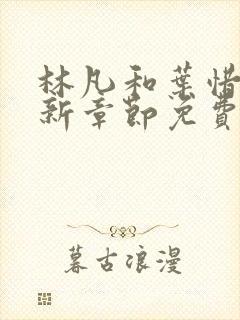 林凡和葉惜
新章節免費
暮古浪漫